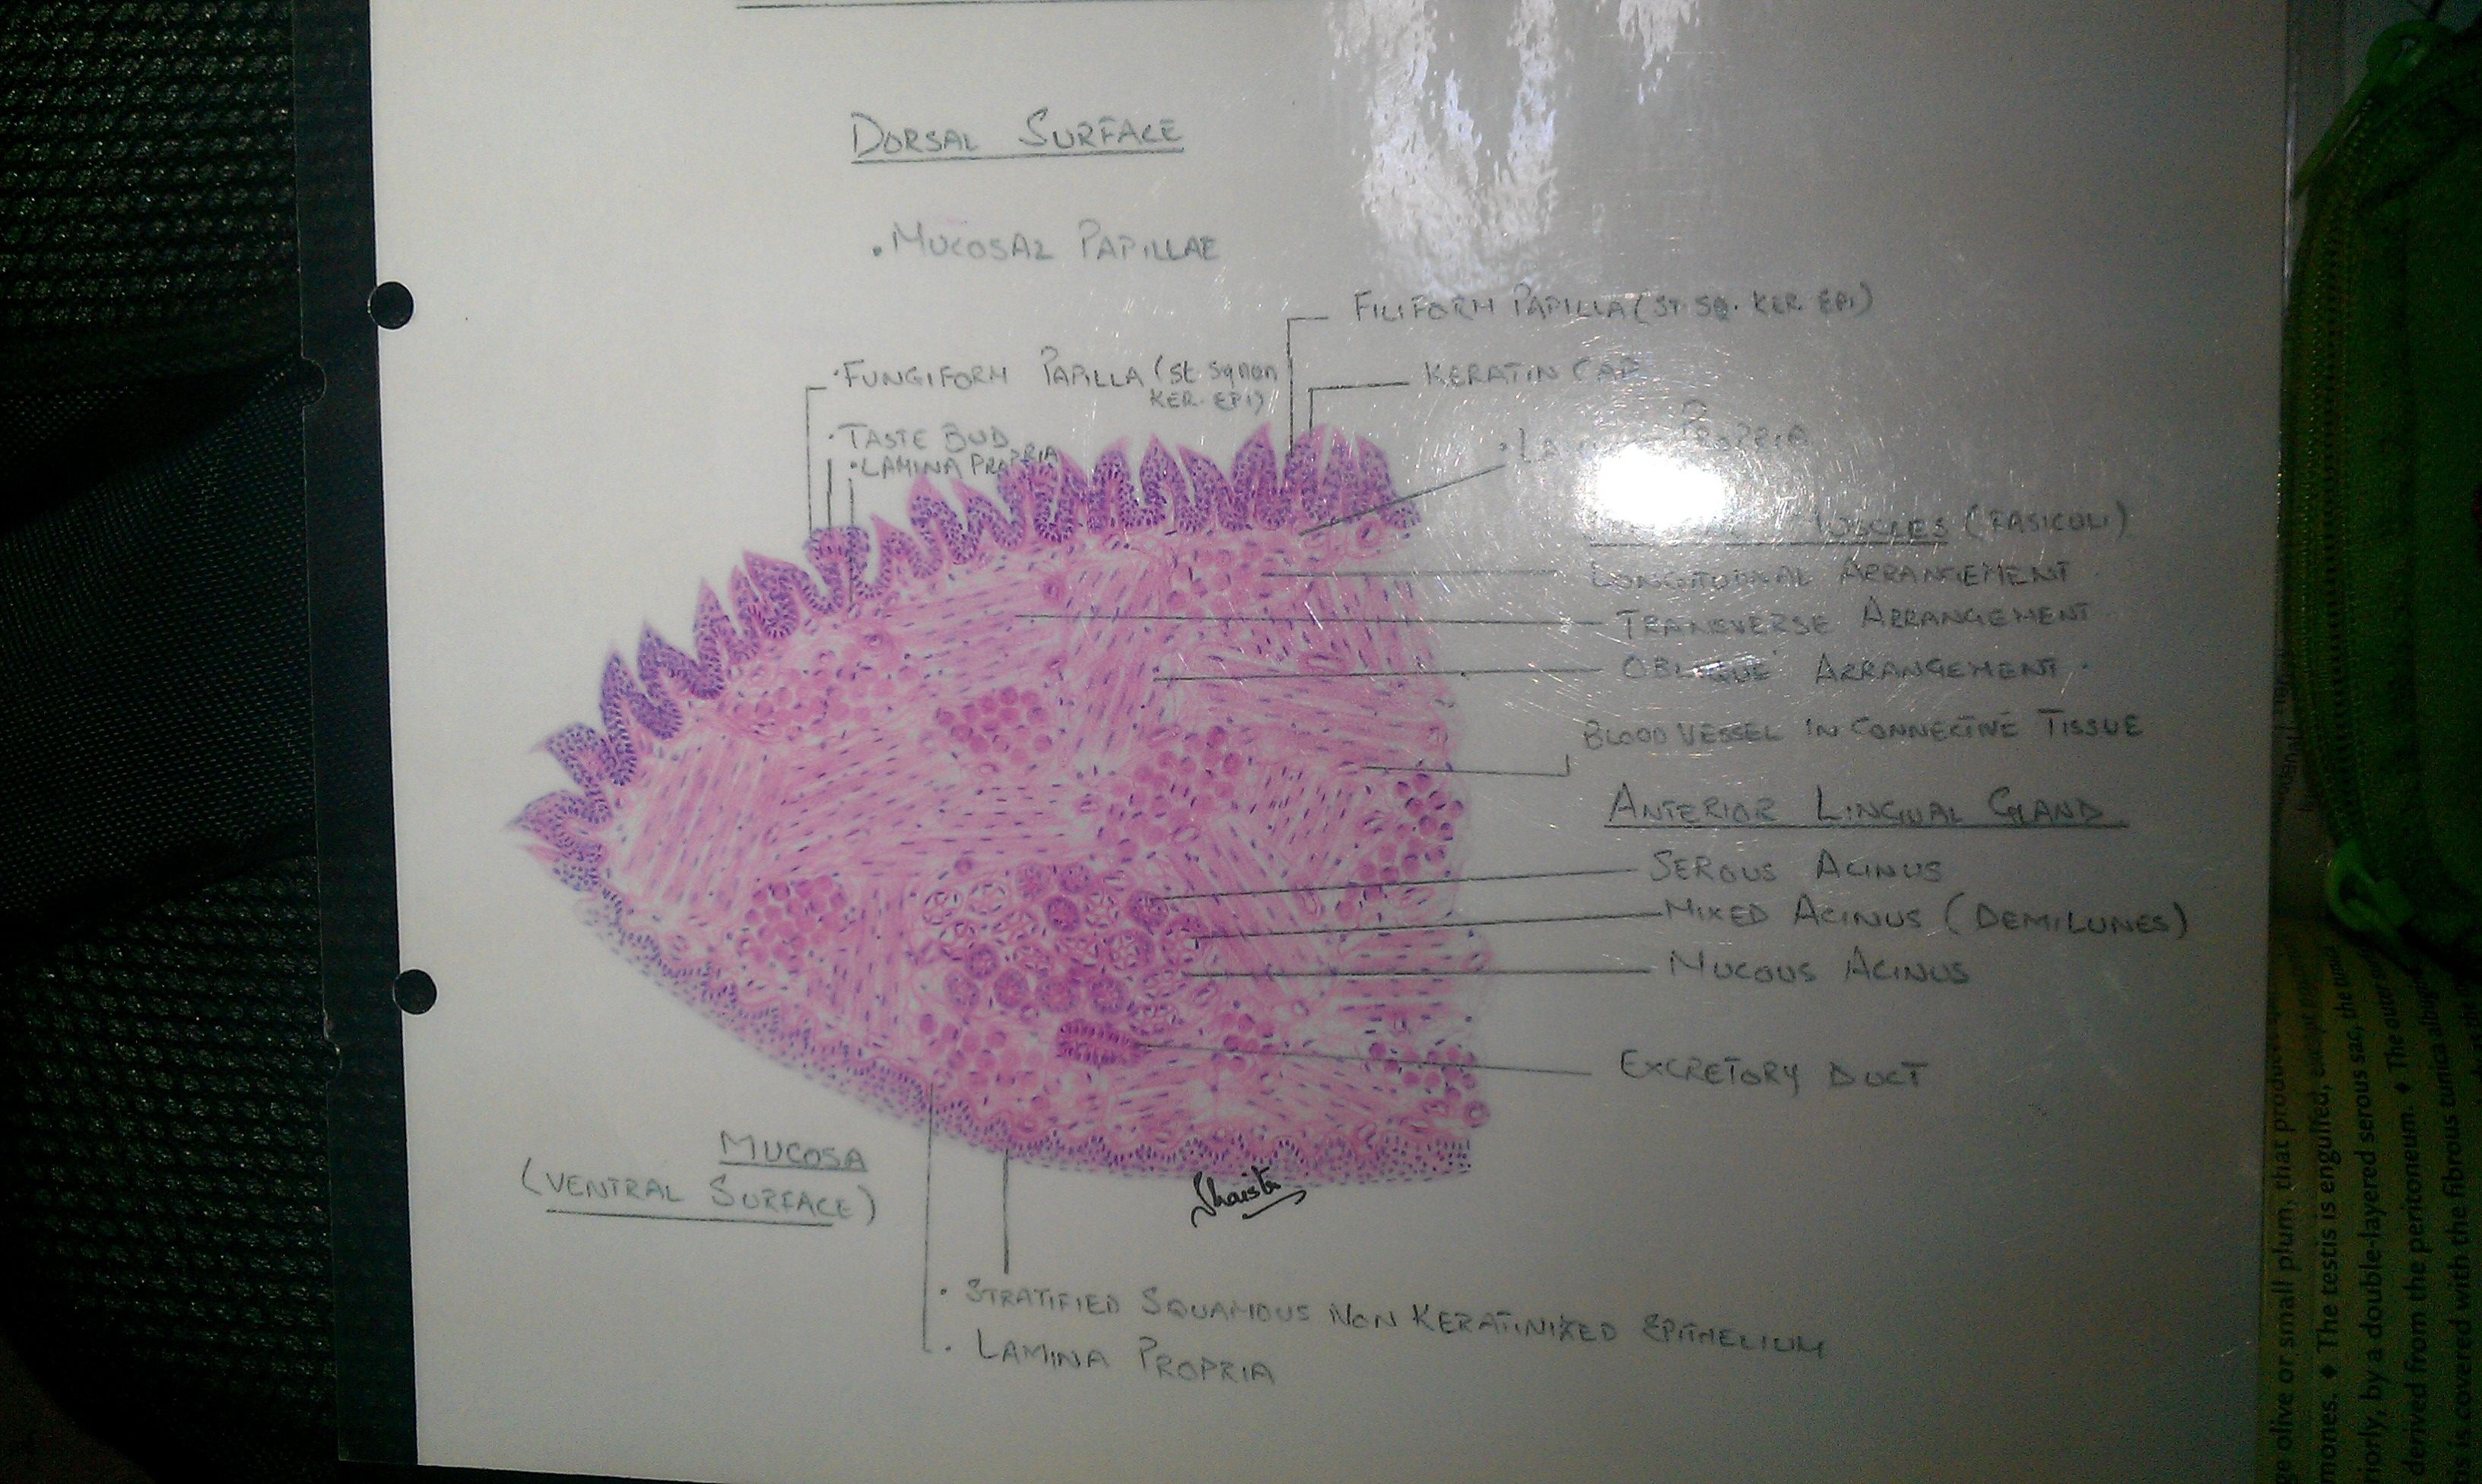 DORSAL SURFACE
• MUCOSAL PAPILLAE
FILIFORM PAPILLA (ST SQ. KER EPI)
• FUNGIFORM PAPILLA (St Sq non
KER. EPI)
KERATIN CAP
• TASTE BUD
• LAMINA PROPRIA
• LA PROPRIA
MUSCLES (FASICULI)
LONGITUDINAL ARRANGEMENT
TRANSVERSE ARRANGEMENT
OBLIQUE ARRANGEMENT
BLOOD VESSEL IN CONNECTIVE TISSUE
ANTERIOR LINGUAL GLAND
SEROUS ACINUS
MIXED ACINUS (DEMILUNES)
MUCOUS ACINUS
EXCRETORY DUCT
MUCOSA
(VENTRAL SURFACE)
Shaista
• STRATIFIED SQUAMOUS NON KERATINIZED EPITHELIUM
• LAMINA PROPRIA
ge olive or small plum, that produc
mones. ♦ The testis is engulfed,
iorly, by a double-layered serous sac, the tunic
derived from the peritoneum. ♦ The outer
is is covered with the fibrous tunica albug